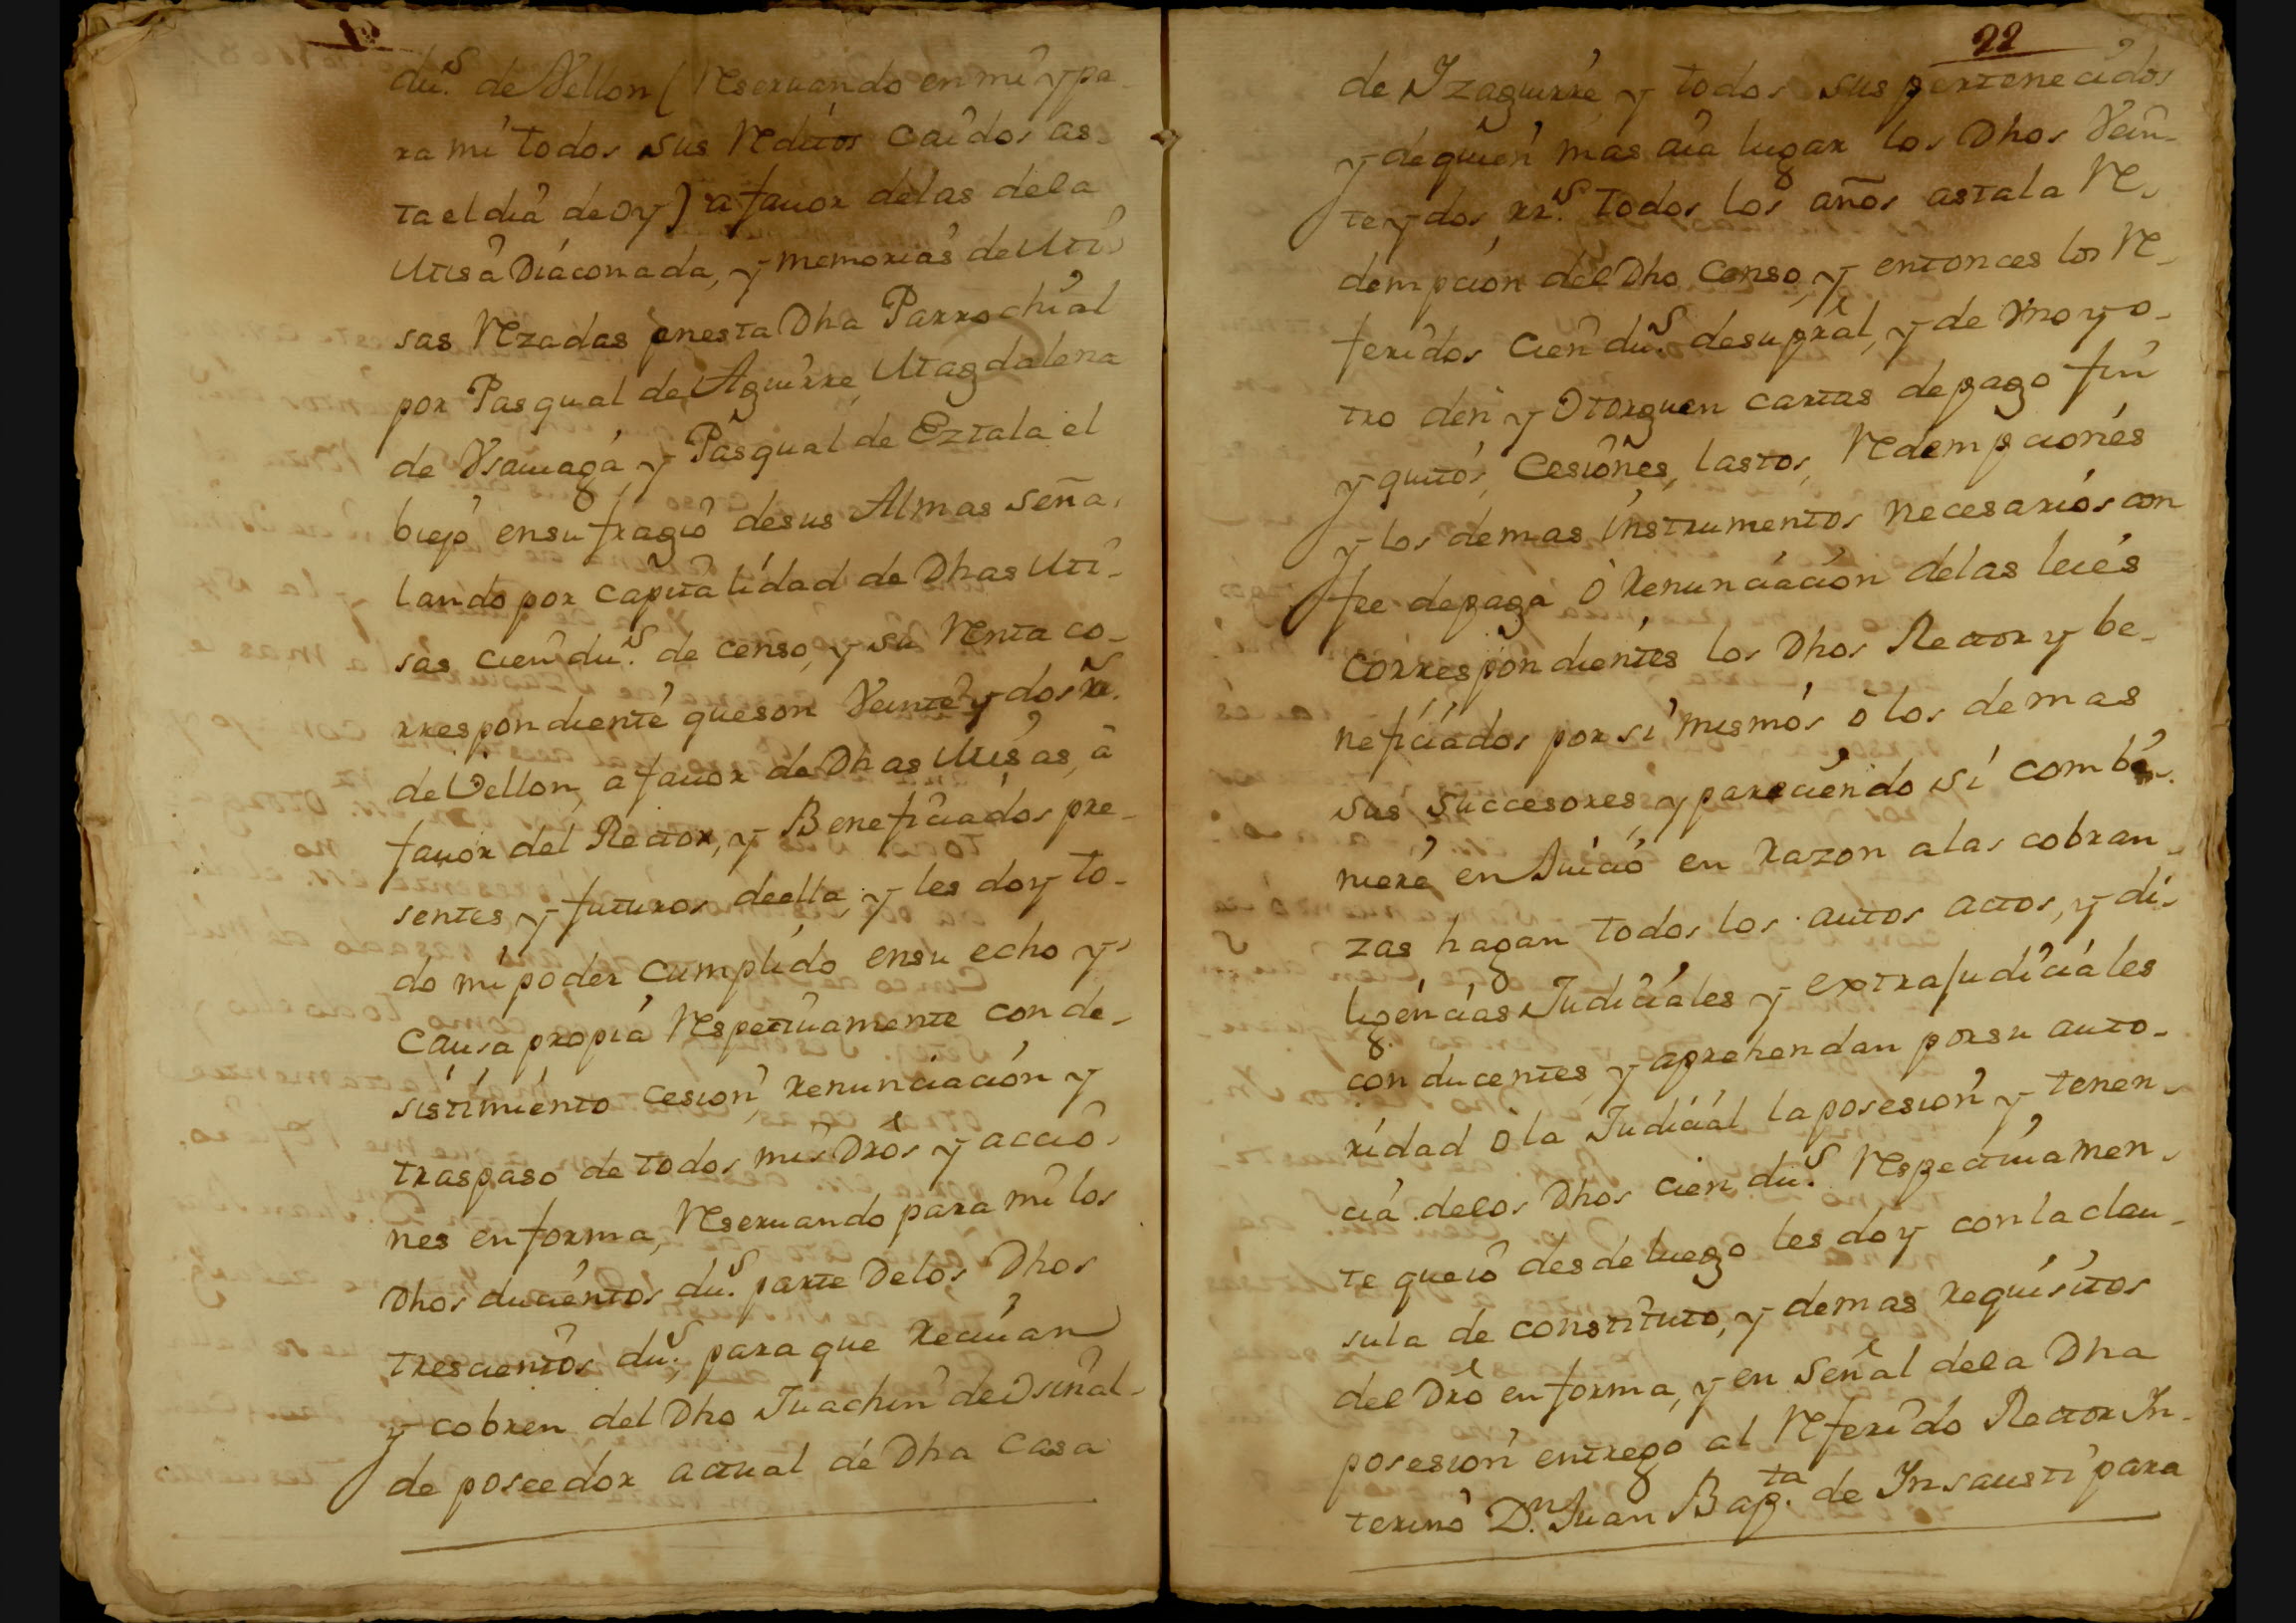 du.s de Vellon (Reseruando en mi y pa-
ra mi todos sus Reditos caidos as-
ta el dia de oy) a fauor de las de la
Misa Diaconada, y memorias de Mi-
sas Rezadas en esta Dha Parrochial
por Pasqual de Aguirre, Magdalena
de Vsauiaga, y Pasqual de Eztala el
biejo en sufragio de sus Almas seña-
lando por capitalidad de Dhas Mi-
sas cien du.s de censo, y su Renta co-
rrespondiente que son Veinte y dos rr.s
de Vellon, a fauor de Dhas Misas, à
fauor del Rector, y Beneficiados pre-
sentes y futuros de ella, y les doy to-
do mi poder cumplido en su echo y
causa propia Respectiuamente con de-
sistimiento cesion, renunciacion y
traspaso de todos mis Dros y accio-
nes en forma, Reseruando para mi los
Dhos ducientos du.s parte de los Dhos
trescientos du.s, para que reciuan
y cobren del Dho Juachin de Osinal-
de poseedor actual de Dha casa
22
de Yzaguirre y todos sus pertenecidos
y de quien mas aia lugar los Dhos Vein-
te y dos rr.s todos los años asta la Re-
dempcion del Dho Censo, y entonces los Re-
feridos cien du.s de su pral, y de vno y o-
tro den y Otorguen cartas de pago fin
y quitos, Cesiones, lastos, Redempciones
y los demas instrumentos necesarios con
fee de paga ò renunciacion de las leies
correspondientes los Dhos Rector y be-
neficiados por si mismos ò los demas
sus succesores, y pareciendo si combi-
niere en Juicio en razon a las cobran-
zas hagan todos los autos actos, y di-
ligencias Judiciales y extrajudiciales
conducentes, y aprehendan por su auto-
ridad o la Judicial la posesion y tenen-
cia de los Dhos cien du.s Respectiuamen-
te que io desde luego les doy con la clau-
sula de constituto, y demas requisitos
del Dro en forma, y en señal de la Dha
posesion entrego al Referido Rector In-
terino D.n Juan Bap.ta de Insausti para